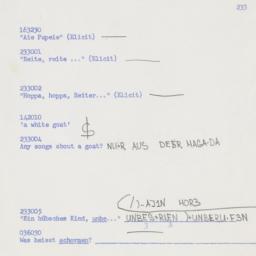 233
163230
"Ale Pupele" (Elicit)
233001
"Reite, reite ..." (Elicit)
233002
"Hoppa, hoppa, Reiter..." (Elicit)
142010
'a white goat'
233004
Any songs about a goat? NUR AUS DEER HAGADA
HORB
233005
"Ein hübsches Kind, unbe..."
036030
Was heisst schormen?